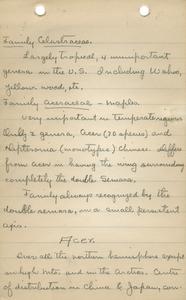 Family Celastraceae.
Largely tropical, 4 unimportant
genera in the U.S. Including Wahoo,
Yellow wood, etc.
Family Aceraceae - maples
Very important in temperate regions
Only 2 genera, Acer (70 species) and
Dipteronia (monotypic) Chinese. Differs
from Acer in having the wing surrounding
completely the double Samara.
Family always recognized by the
double samara, on a small persistent
axis.
Acer.
Over all the northern hemisphere except
in high lats. and in the Arctics. Centre
of distribution in China & Japan, con-